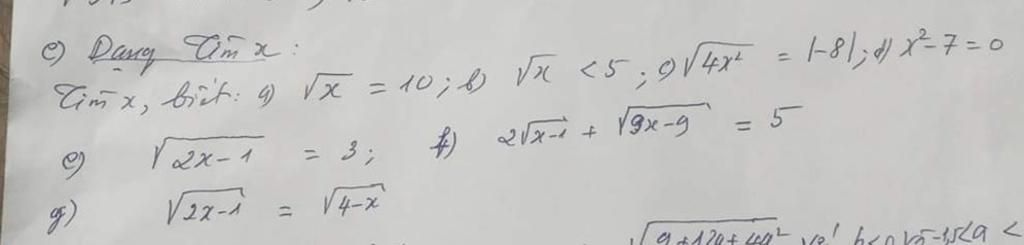 e) Dạng Tìm x:
Tìm x, biết: a) √x = 10; b) √x < 5; c) √4x² = |-8|; d) x² - 7 = 0
e) √2x-1 = 3; f) 2√x-1 + √9x-9 = 5
g) √2x-1 = √4-x
√9+12a+4a²